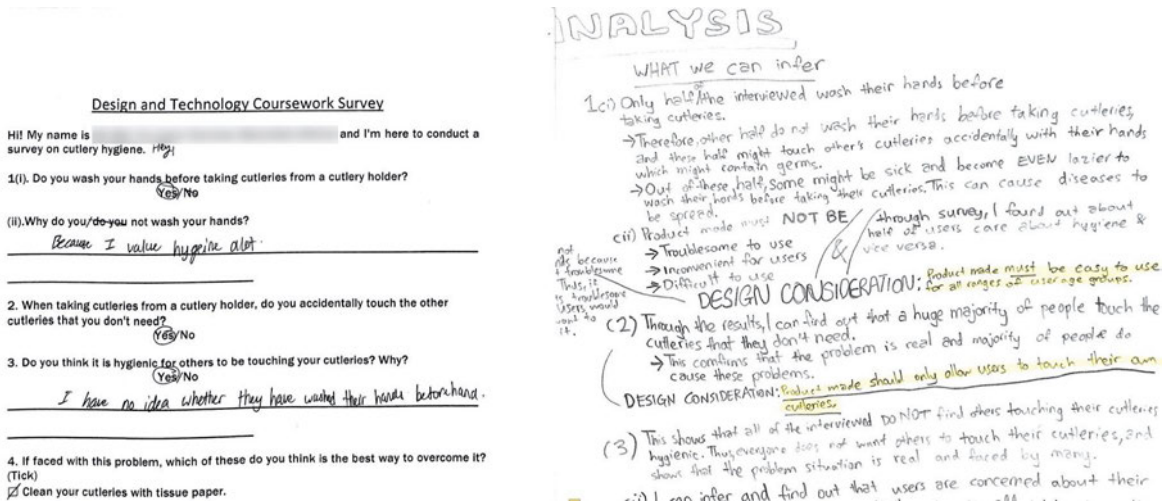 Design and Technology Coursework Survey
Hi! My name is and I'm here to conduct a
survey on cutlery hygiene. Hey!
1(i). Do you wash your hands before taking cutleries from a cutlery holder?
Yes/No
(ii).Why do you/do you not wash your hands?
Because I value hygeine alot.
2. When taking cutleries from a cutlery holder, do you accidentally touch the other
cutleries that you don't need?
Yes/No
3. Do you think it is hygienic for others to be touching your cutleries? Why?
Yes/No
I have no idea whether they have washed their hands beforehand.
4. If faced with this problem, which of these do you think is the best way to overcome it?
(Tick)
Clean your cutleries with tissue paper.
NALYSIS
WHAT we can infer
1(i) Only half of the interviewed wash their hands before
taking cutleries.
→Therefore, other half do not wash their hands before taking cutleries,
and these half might touch other's cutleries accidentally with their hands
which might contain germs.
→Out of these, half, some might be sick and become EVEN lazier to
wash their hands before taking their cutleries. This can cause diseases to
be spread.
(ii) Product made must NOT BE
→Troublesome to use
→Inconvenient for users
→Difficult to use
&
through survey, I found out about
half of users care about hygiene &
vice versa.
not
because
troublesome
Thus, it
is troublesome
users would
want to
it.
DESIGN CONSIDERATION: Product made must be easy to use
for all ranges of user age groups.
(2) Through the results, I can find out that a huge majority of people touch the
cutleries that they don't need.
→This comfirms that the problem is real and majority of people do
cause these problems.
DESIGN CONSIDERATION: Product made should only allow users to touch their own
cutleries.
(3) This shows that all of the interviewed DO NOT find others touching their cutleries
hygienic. Thus, everyone does not want others to touch their cutleries, and
shows that the problem situation is real and faced by many.
I can infer and find out that users are concerned about their